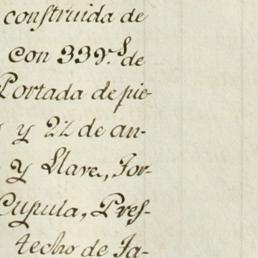 construida de
con 339.v.s de
Portada de pie-
y 22 de an-
y Llave, For-
Cupula, Pres-
techo de Ta-